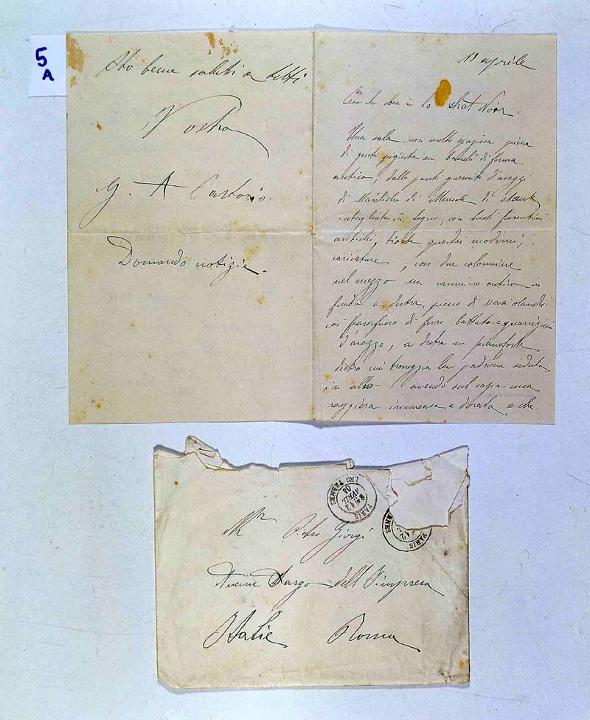 5
A
Sto bene saluti a tutti
Vostro
G. A.
Domando notizie.
11 aprile
Ecco che cosa è lo Chat Noir.
Una sala non molto spaziosa piena
di gente pigiata su banchi di forma
antica, dalle pareti d'arazzi
di di di
in legno, con busti fiorentini
antichi, quadri moderni,
caricature, con due colonnine
nel mezzo un camino antico in
fondo a destra, pieno di vasi olandesi
di ferro battuto e
d'arazzo, a destra un pianoforte
dietro cui troneggia la padrona seduta
in alto avendo sul capo una
raggiera immensa e dorata, e che
PARIS
AVRIL
PARIS
Mr Pietro Giorgi
Largo dell'Impresa
Italie Roma